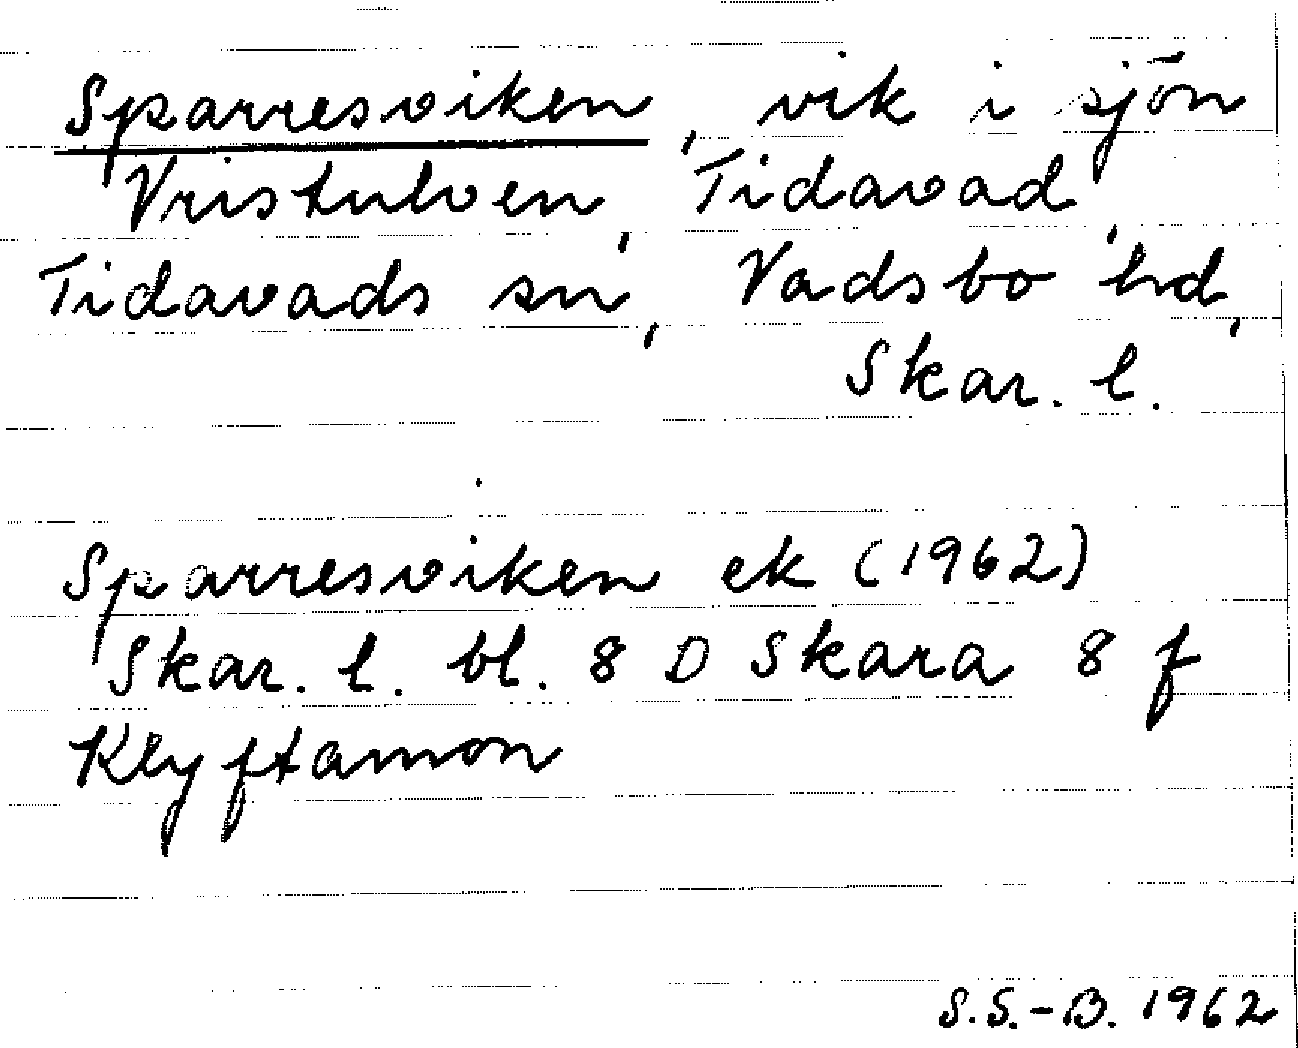 Sparresviken, vik i sjön
Vristulven, Tidavad,
Tidavads sn, Vadsbo hd,
Skar. l.
Sparresviken ek (1962)
Skar. l. bl. 8 D Skara 8 f
Klyftamon
S.S.-B. 1962